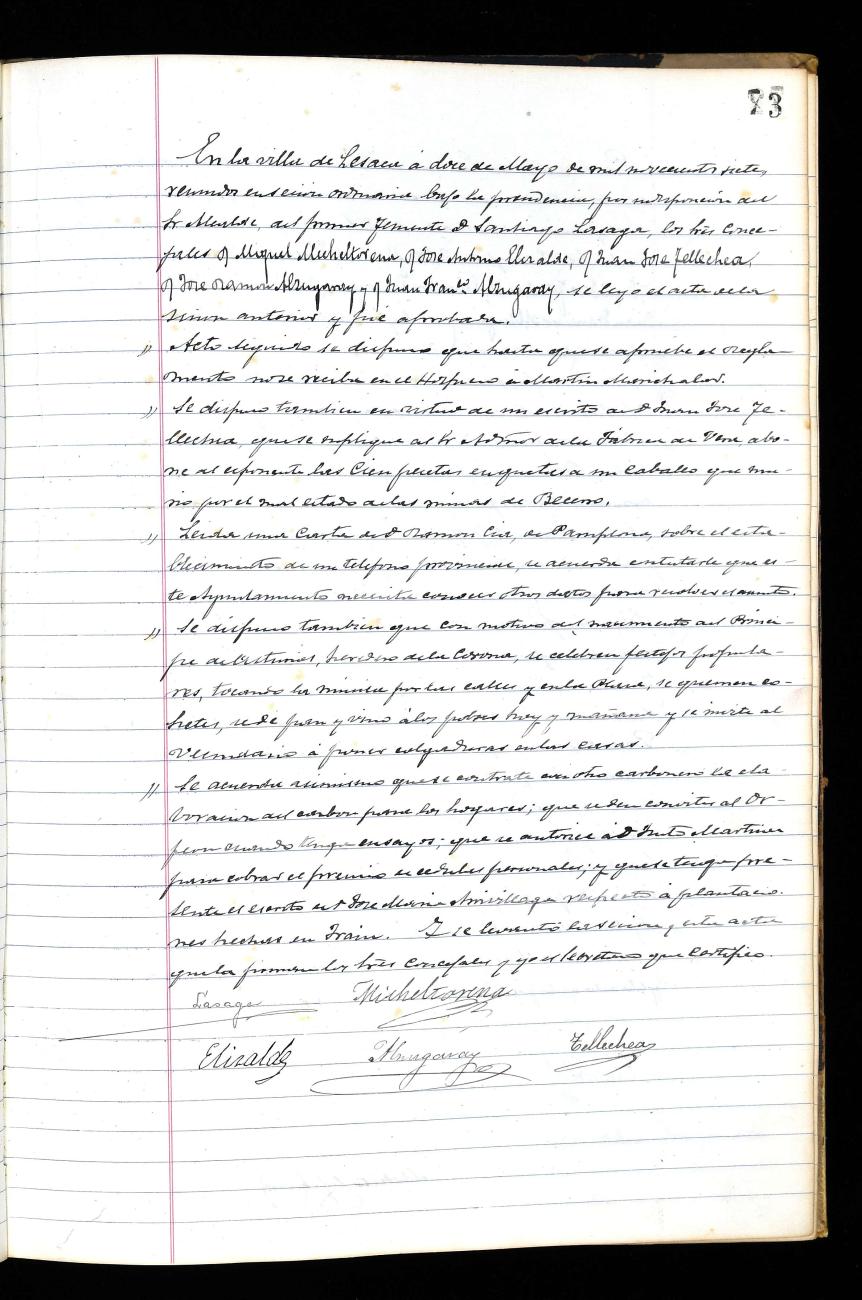 23
En la villa de Lesaca á doce de Mayo de mil novecientos siete,
reunidos en sesion ordinaria bajo la presidencia, por indisposición del
Sr Alcalde, del primer Teniente D Santiago Lasaga, los Srs Conce-
jales D Miguel Micheltorena, D Jose Antonio Elizalde, D Juan Jose Tellechea,
D Jose Ramon Alzugaray y D Juan Franco Alzugaray, se leyo el acta de la
sesion anterior y fué aprobada.
" Acto seguido se dispuso que hasta que se apruebe el Regla-
mento no se reciba en el Hospicio á Martin Marichalar.
" Se dispuso tambien en virtud de un escrito de D Juan Jose Te-
llechea, que se suplique al Sr Admor de la Fábrica de Vera, abo-
ne al esponente las Cien pesetas en que tasa un Caballo que mu-
rio por el mal estado de las minas de
" Leida una Carta de D Ramon de Pamplona, sobre el esta-
blecimiento de un teléfono provincial, se acuerda contestarle que es-
te Ayuntamiento necesita conocer otros datos para resolver el asunto.
" Se dispuso tambien que con motivo del nacimiento del Princi-
pe de Asturias, heredero de la Corona, se celebren festejos popula-
res, tocando la música por las calles y en la Plaza, se quemen co-
hetes, se de pan y vino á los pobres hoy y mañana y se invite al
Vecindario á poner colgaduras en las casas.
" Se acuerda asimismo que se contrate con otro carbonero la ela-
boracion del carbon para los hogares; que se den convites al Or-
feon cuando tenga ensayos; que se autorice á D Justo Martinez
para cobrar el premio de cédulas personales; y que se tenga pre-
sente el escrito de D Jose Maria respecto á plantacio-
nes hechas en Frain. Y se levantó la sesion y esta acta
que la firman los Srs Concejales y yo el Secretario que Certifico.
Lasaga Micheltorena
Elizalde Alzugaray Tellechea